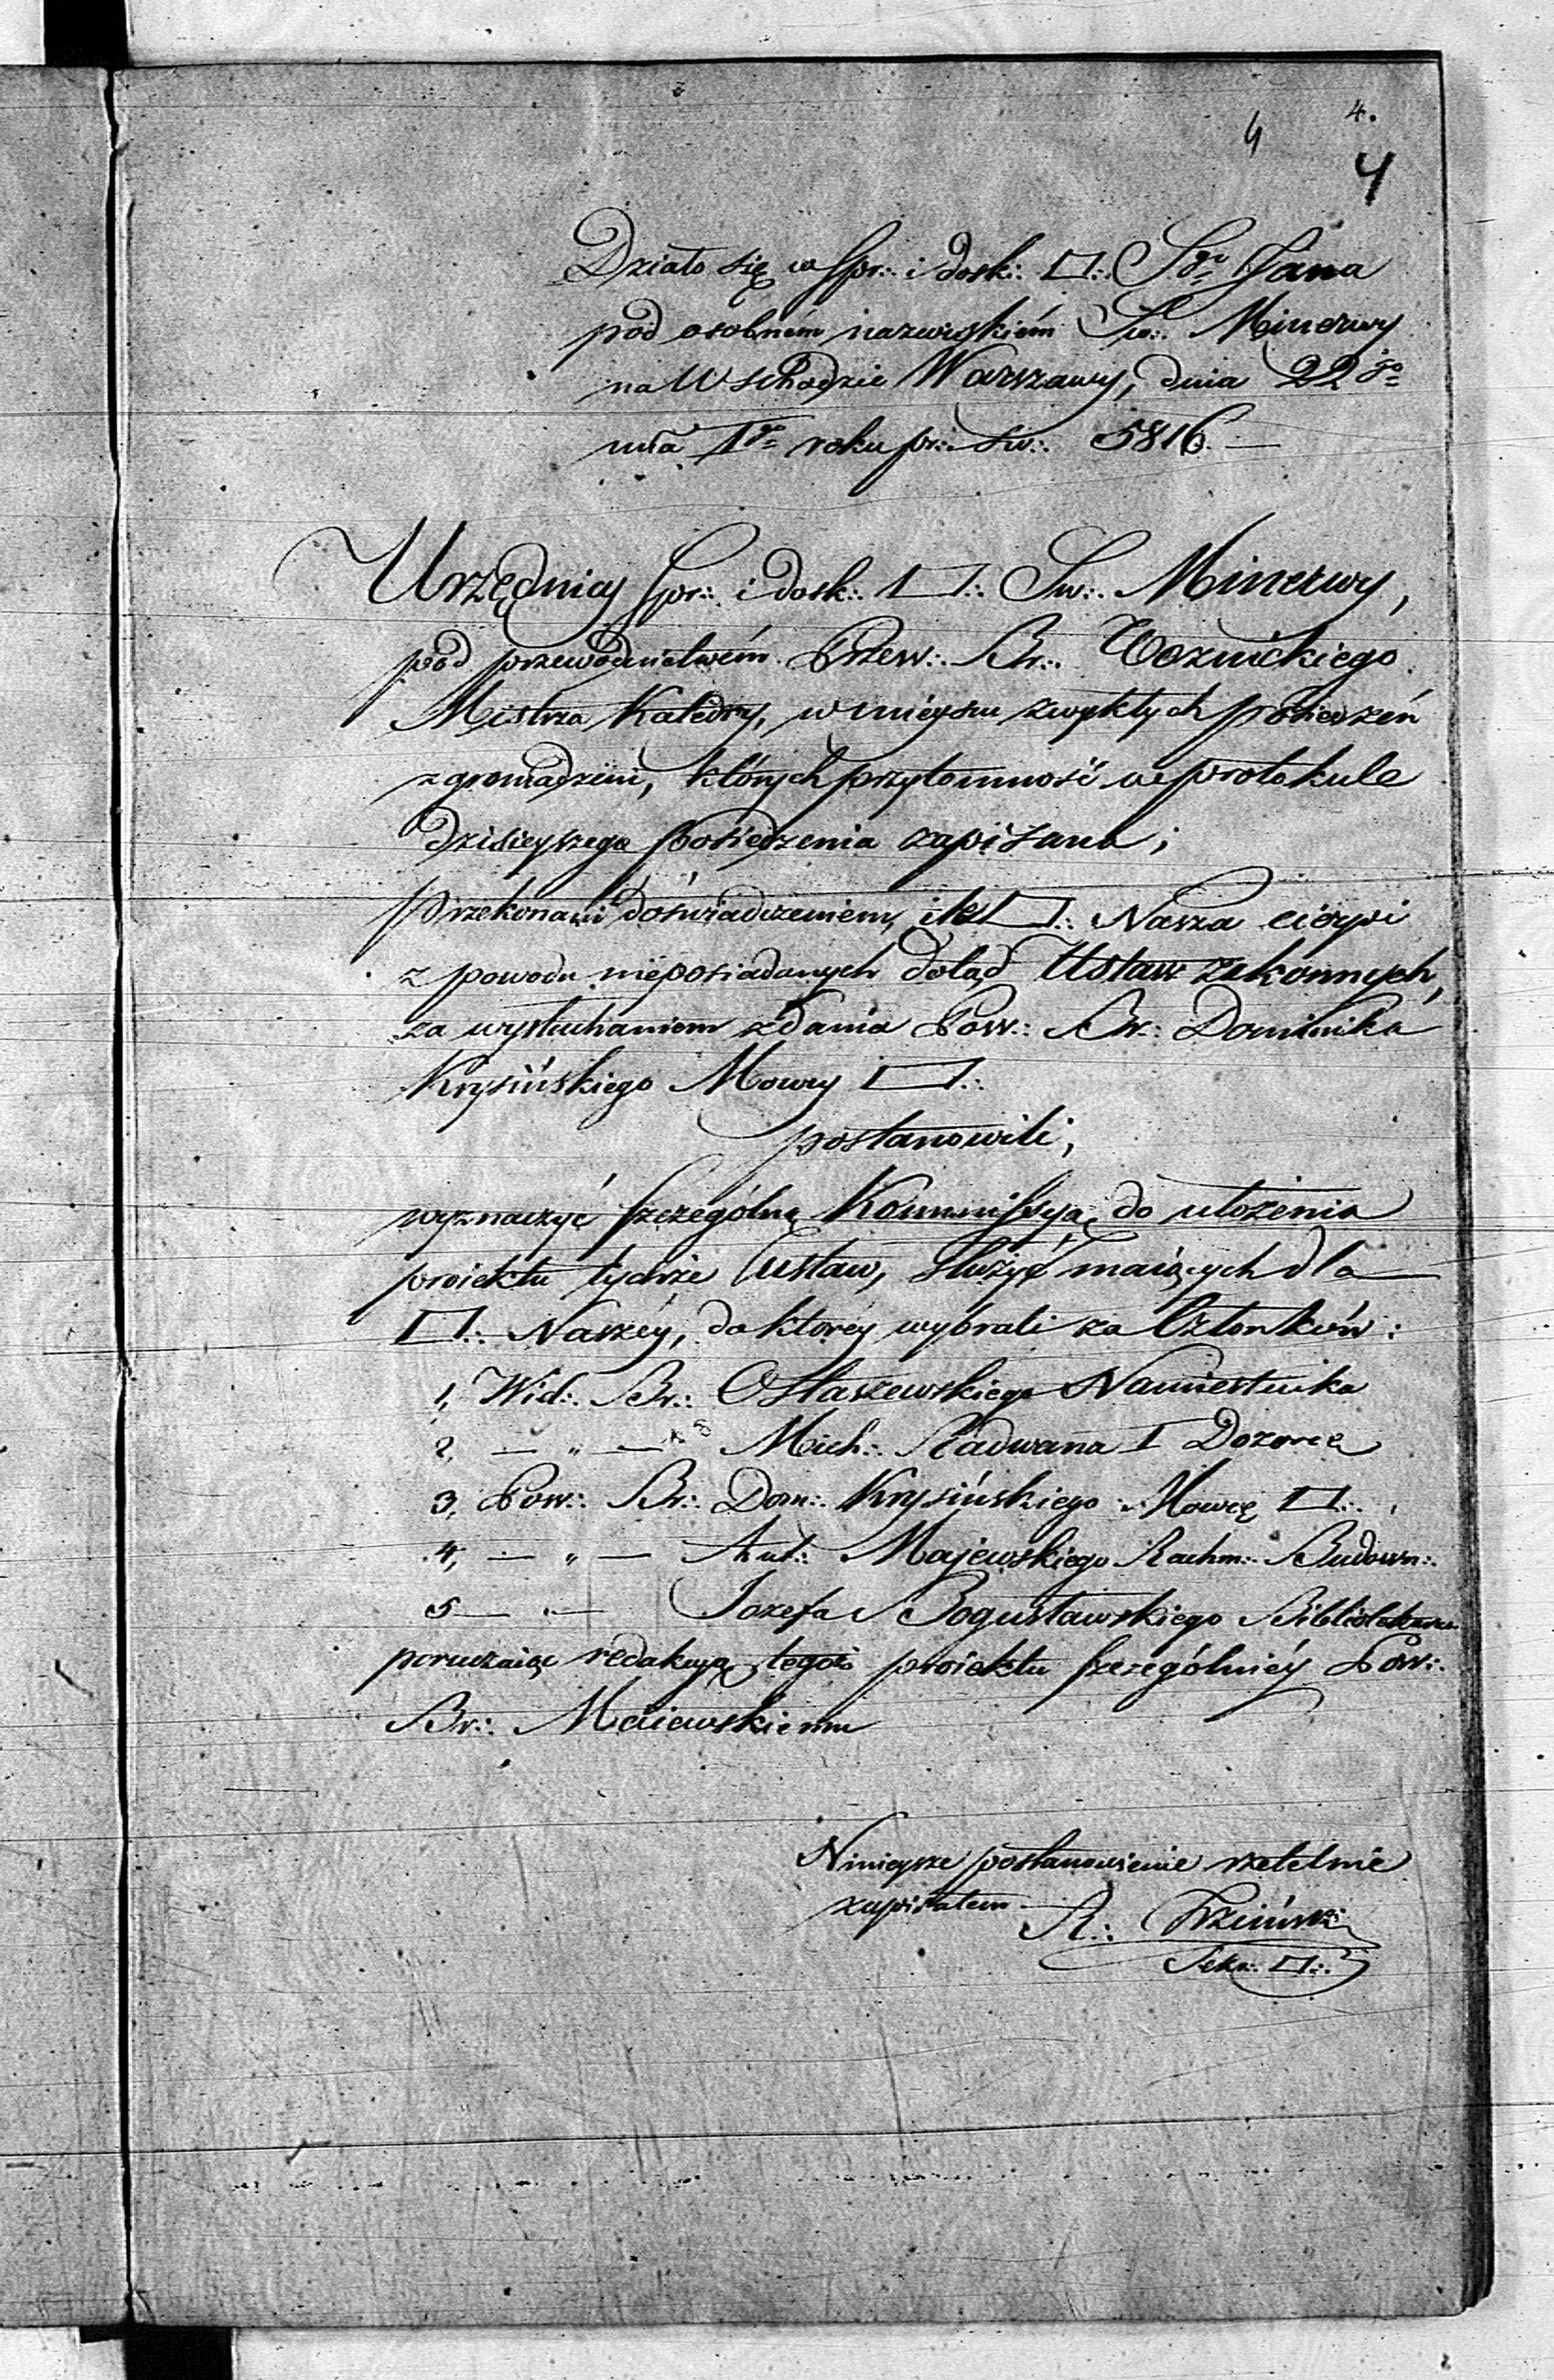 4 4.
4
Działo się w Spr∴ i dosk∴ □∴ Sgo Jana
pod osobném nazwiskiém Św∴ Minerwy
na Wschodzie Warszawy, dnia 22go
mca Igo roku pr∴ św∴ 5816. —
Urzędnicy Spr∴ i dosk∴ □∴ Św∴ Minerwy,
pod przewodnictwém Przew∴ Br∴ Woznickiego
Mistrza Katedry, w mieyscu zwykłych posiedzeń
zgromadzeni, których przytomność w protokule
dzisieyszego posiedzenia zapisana;
przekonani doświadczeniem, ile □∴ Nasza cierpi
z powodu nieposiadanych dotąd Ustaw zakonnych,
za wysłuchaniem zdania Pow∴ Br∴ Dominika
Krysińskiego Mowcy □∴
postanowili;
wyznaczyć szczególną Kommissyją do ułożenia
proiektu tychże Ustaw, służyć maiących dla
□∴ Naszéy, do któréy wybrali za Członków:
1, Wid∴ Br∴ Ostaszewskiego Namiestnika
2, — „ — Mich∴ Radwana I Dozorcę
3, Pow∴ Br∴ Dom∴ Krysińskiego Mowcę □∴
4, — „ — Ant∴ Majewskiego Rachm∴ Budown∴
5 — „ — Jozefa Bogusławskiego Bibliotekarza
poruczaiąc redakcyą tegoż proiektu szczególniéy Pow∴
Br∴ Maiewskiemu
Ninieysze postanowienie rzetelnie
zapisałem
Sekr∴ □∴